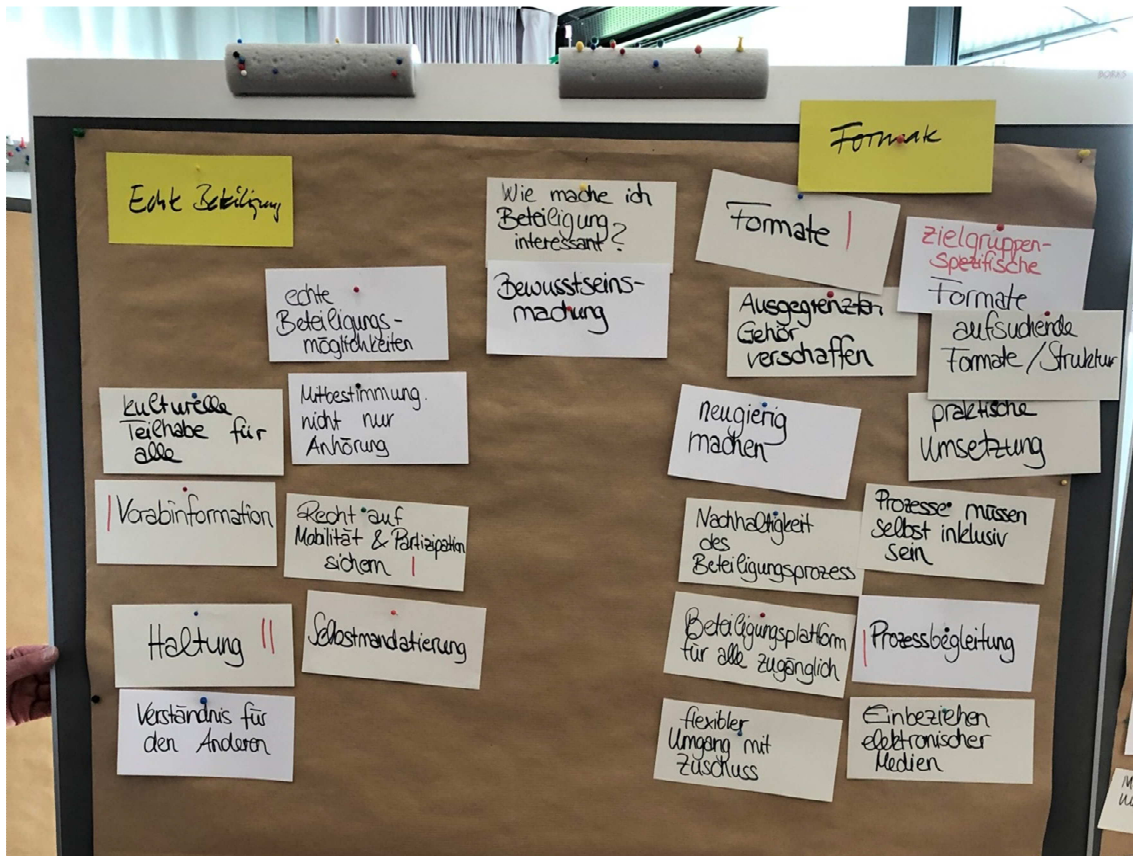 Echte Beteiligung
echte
Beteiligungs-
möglichkeiten
kulturelle
Teilhabe für
alle
Mitbestimmung
nicht nur
Anhörung
Vorabinformation
Recht auf
Mobilität & Partizipation
sichern
Haltung
Selbstmandatierung
Verständnis für
den Anderen
Wie mache ich
Beteiligung
interessant?
Bewusstseins-
machung
Formate
Formate
zielgruppen-
spezifische
Formate
Ausgegrenzten
Gehör
verschaffen
aufsuchende
Formate / Struktur
neugierig
machen
praktische
Umsetzung
Nachhaltigkeit
des
Beteiligungsprozess
Prozesse müssen
selbst inklusiv
sein
Beteiligungsplatform
für alle zugänglich
Prozessbegleitung
flexibler
Umgang mit
Zuschuss
Einbeziehen
elektronischer
Medien